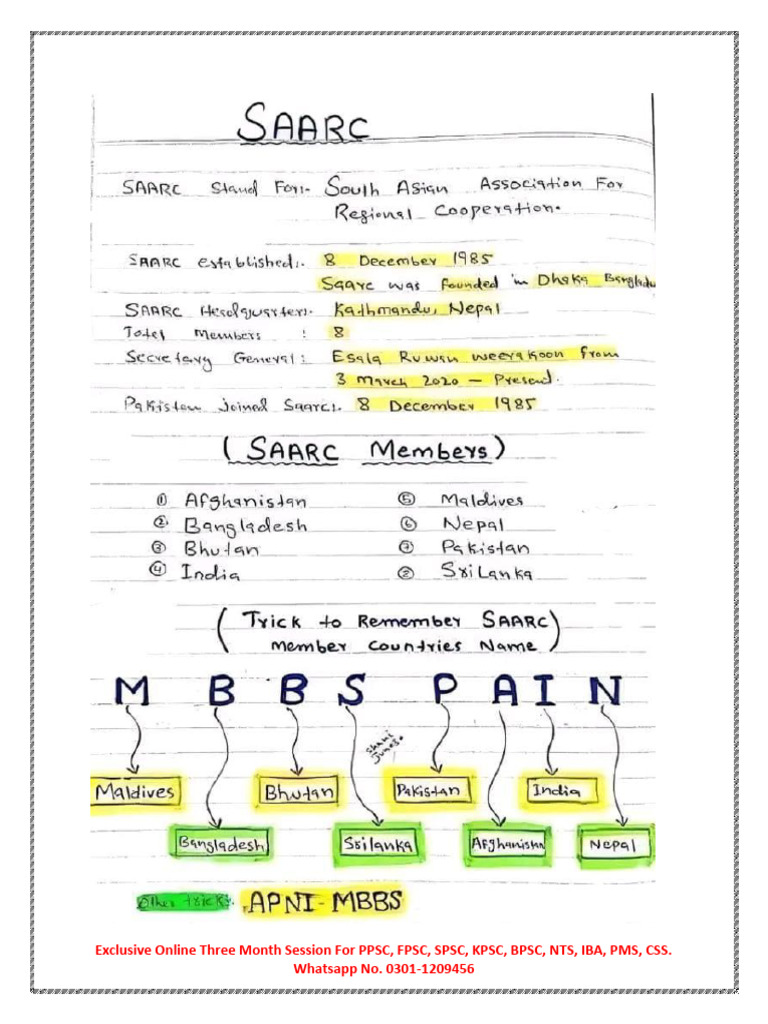 SAARC
SAARC Stand For:- South Asian Association For
Regional Cooperation.
SAARC established:. 8 December 1985
Saarc was founded in Dhaka Bangladu
SAARC Headquarter:. Kathmandu, Nepal
Total Members : 8
Secretary General: Esala Ruwan weerakoon from
3 March 2020 — Present.
Pakistan joined Saarc:. 8 December 1985
(SAARC Members)
① Afghanistan ⑤ Maldives
② Bangladesh ⑥ Nepal
③ Bhutan ⑦ Pakistan
④ India ② SriLanka
(Trick to Remember SAARC
Member Countries Name)
M B B S P A I N
Shani
Junes.
Maldives Bhutan Pakistan India
Bangladesh Srilanka Afghanistan Nepal
Other trick:. APNI-MBBS
Exclusive Online Three Month Session For PPSC, FPSC, SPSC, KPSC, BPSC, NTS, IBA, PMS, CSS.
Whatsapp No. 0301-1209456